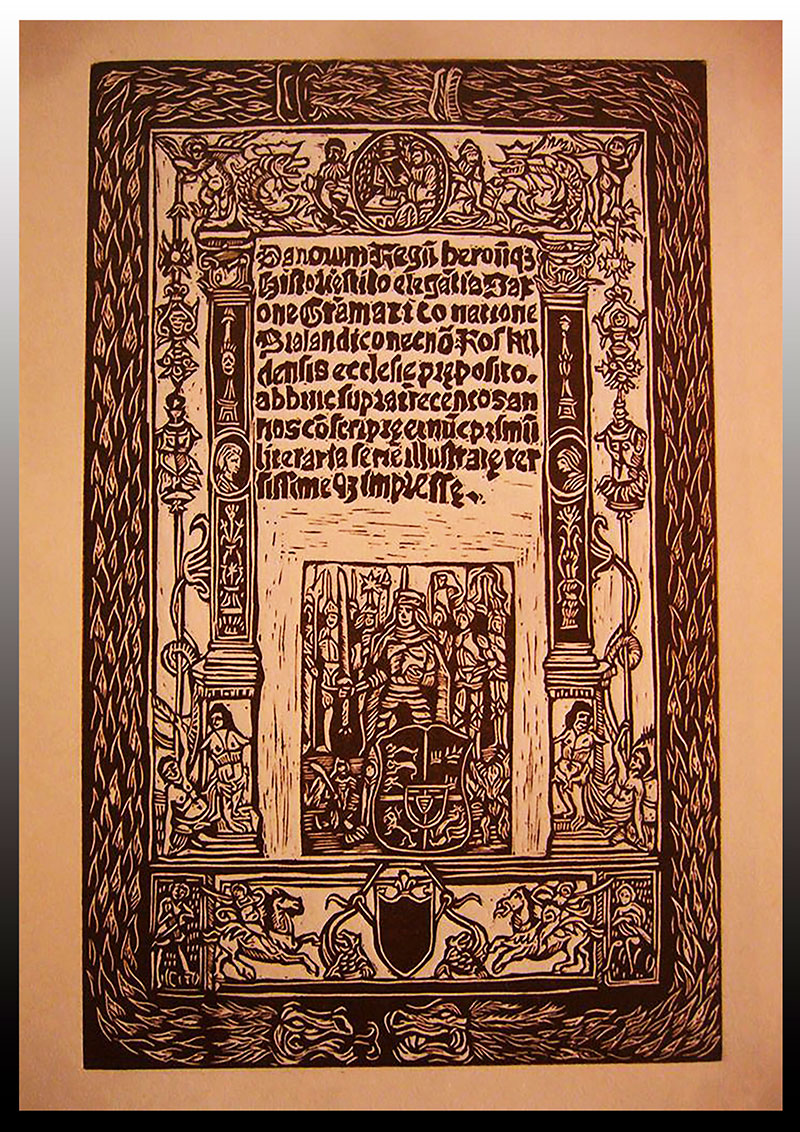 Danorum Regū heroūqȝ
Historię stilo elegāti a Sax
one Gramatico natione
Sialandico necnō Roskil
densis ecclesię pręposito.
abhinc supra trecentos an
nos cōscriptę et nūc primū
literaria serie illustratę ter
sissimeqȝ impressę.